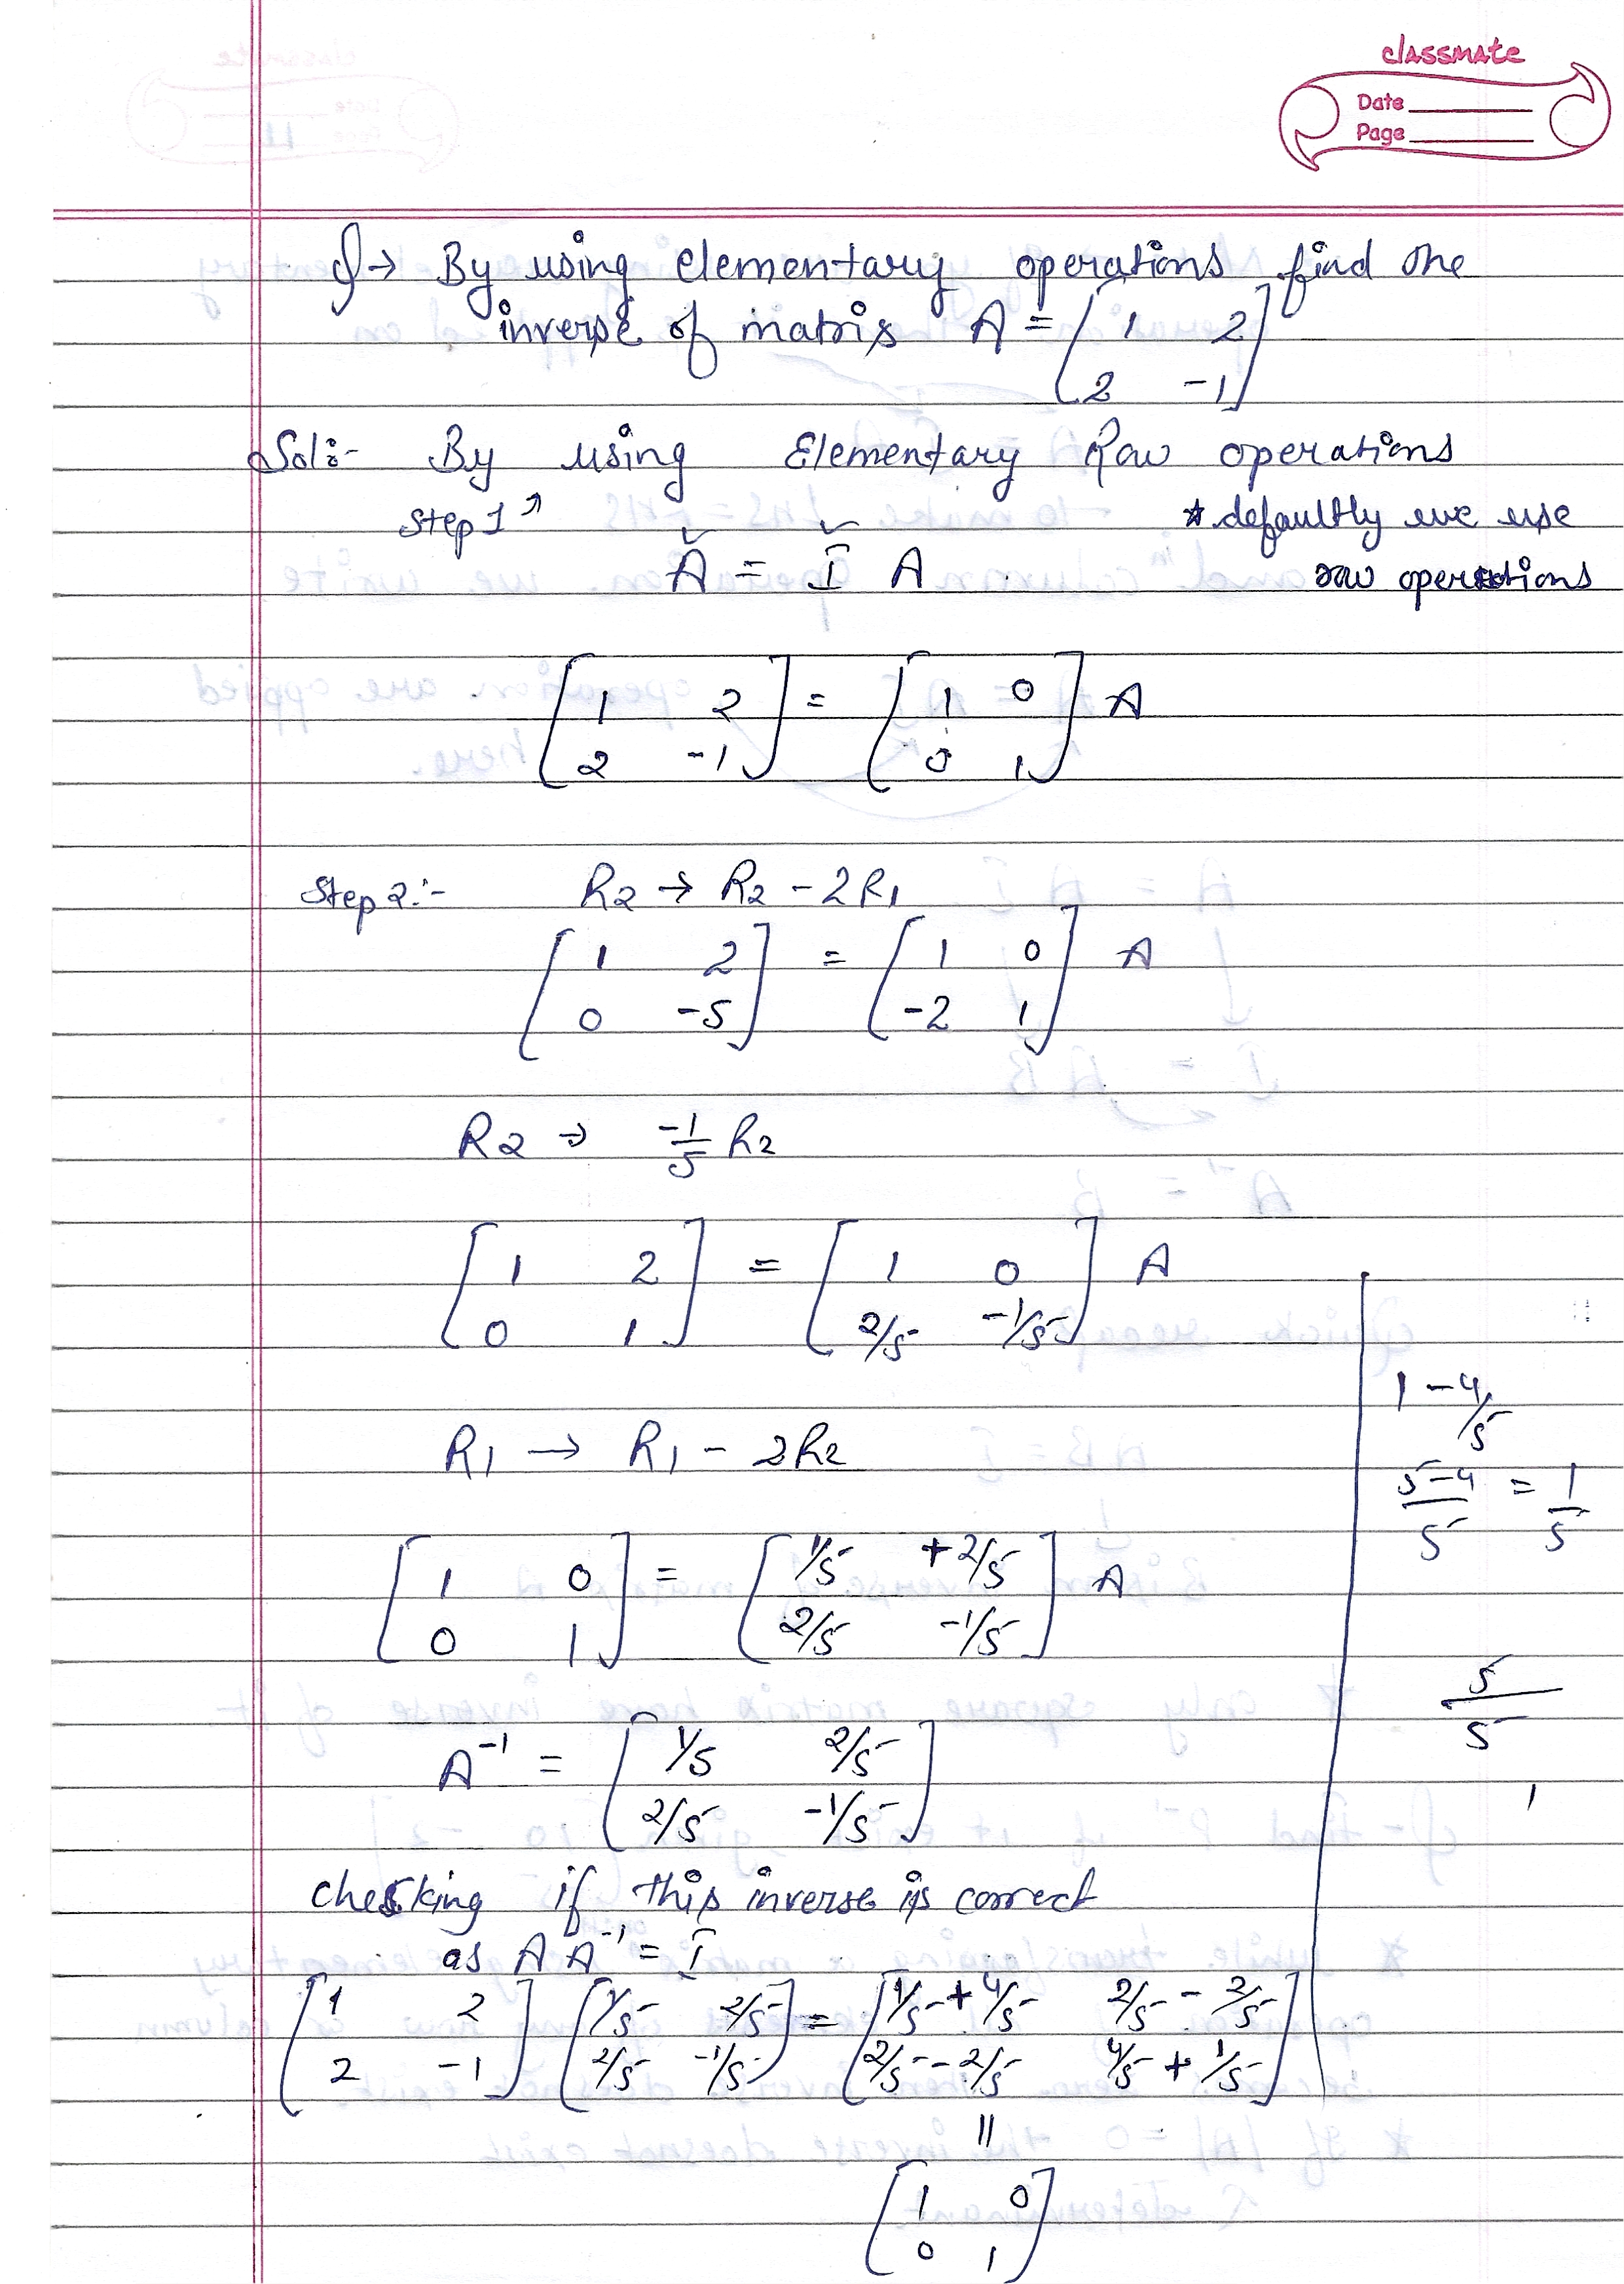 classmate
Date
Page
Q→ By using elementary operations find the
inverse of matrix A = [1 2
2 -1]
Sol:- By using Elementary Row operations
step 1
* defaultly we use
row operations
A = I A
[1 2
2 -1] = [1 0
0 1] A
Step 2:- R2 → R2 - 2R1
[1 2
0 -5] = [1 0
-2 1] A
R2 → -1/5 R2
[1 2
0 1] = [1 0
2/5 -1/5] A
R1 → R1 - 2R2
[1 0
0 1] = [1/5 +2/5
2/5 -1/5] A
A⁻¹ = [1/5 2/5
2/5 -1/5]
1 - 4/5
5-4/5 = 1/5
5/5
1
checking if this inverse is correct
as A A⁻¹ = I
[1 2
2 -1] [1/5 2/5
2/5 -1/5] = [1/5 + 4/5 2/5 - 2/5
2/5 - 2/5 4/5 + 1/5]
=
[1 0
0 1]